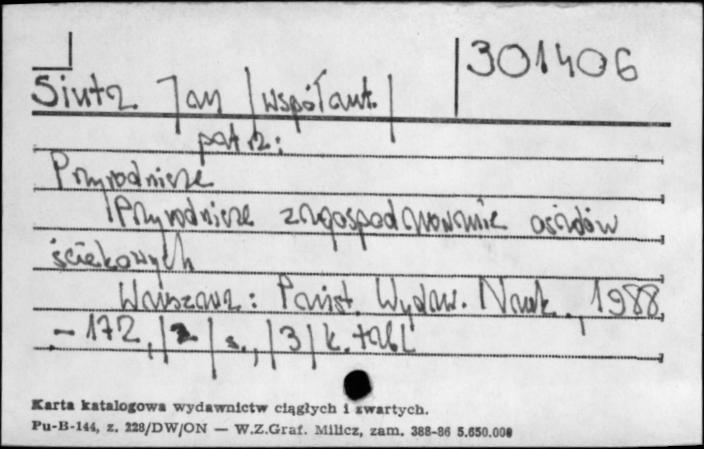 301406
Siuta Jan |współaut.|
patrz:
Przyrodnicze
|Przyrodnicze zagospodarowanie osadów
ściekowych
Warszawa: Państ. Wydaw. Nauk., 1988.
- 172, |2| s., |3| k. tabl
Karta katalogowa wydawnictw ciągłych i zwartych.
Pu-B-144, z. 228/DW/ON — W.Z.Graf. Milicz, zam. 388-86 5.650.000